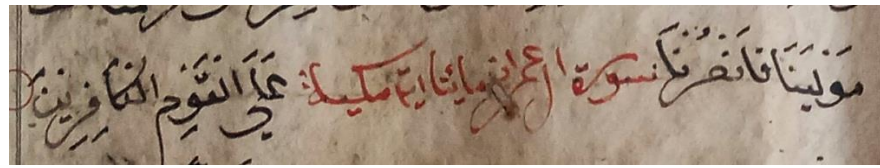 مَوْلَيٰنَا فَانصُرْنَا سورة ال عمران مايتا اية مكية عَلَي الْقَوْمِ الْكَافِرِينَ